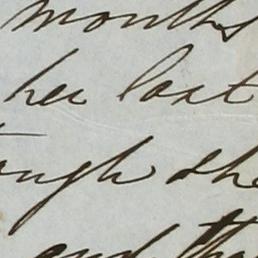 months
her last
ough she
and tha